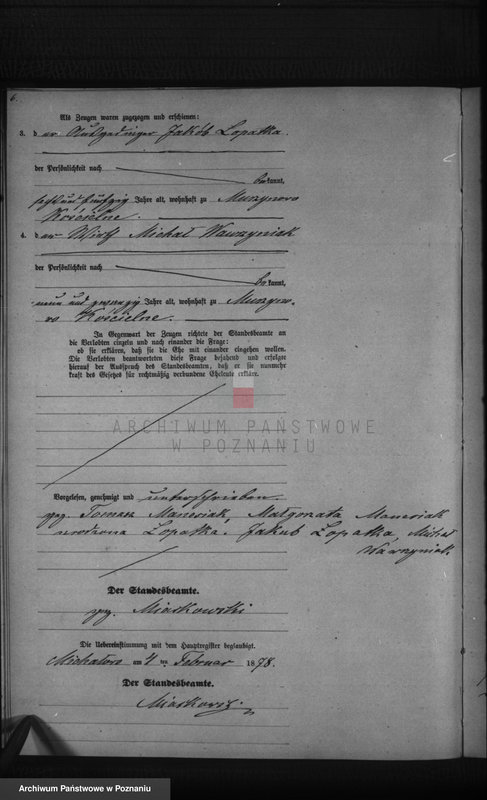 6.
Als Zeugen waren zugezogen und erschienen:
3. der Ausgedinger Jakób Łopatka.
der Persönlichkeit nach
bekannt,
sechsundfünfzig Jahre alt, wohnhaft zu Murzynowo
Kościelne.
4. der Wirth Michał Wawrzyniak
der Persönlichkeit nach
bekannt,
neun und zwanzig Jahre alt, wohnhaft zu Murzyno-
wo Kościelne.
In Gegenwart der Zeugen richtete der Standesbeamte an
die Verlobten einzeln und nach einander die Frage:
ob sie erklären, daß sie die Ehe mit einander eingehen wollen.
Die Verlobten beantworteten diese Frage bejahend und erfolgte
hierauf der Ausspruch des Standesbeamten, daß er sie nunmehr
kraft des Gesetzes für rechtmäßig verbundene Eheleute erkläre.
ARCHIWUM PAŃSTWOWE
W POZNANIU
Vorgelesen, genehmigt und unterschrieben
gez. Tomasz Maneziak, Małgorzata Maneziak
urodzona Łopatka. Jakub Łopatka, Michał
Wawrzyniak
Der Standesbeamte.
gez. Miaskowski
Die Uebereinstimmung mit dem Hauptregister beglaubigt.
am 4 ten Februar 1898.
Der Standesbeamte.
Archiwum Państwowe w Poznaniu